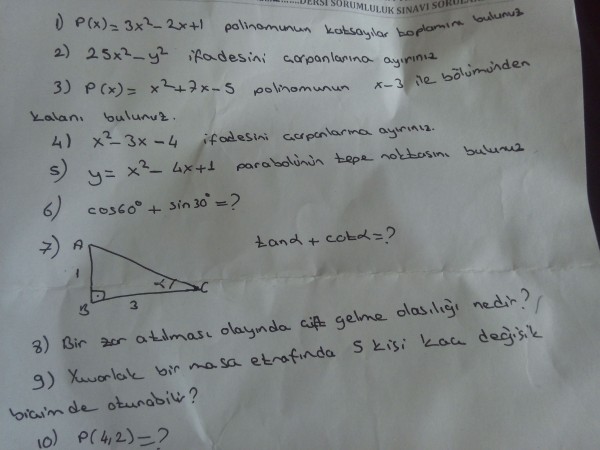 DERSİ SORUMLULUK SINAVI SORULARI
1) P(x) = 3x² - 2x + 1 polinomunun katsayılar toplamını bulunuz
2) 25x² - y² ifadesini çarpanlarına ayırınız
3) P(x) = x² + 7x - 5 polinomunun x - 3 ile bölümünden
kalanı bulunuz.
4) x² - 3x - 4 ifadesini çarpanlarına ayırınız.
5) y = x² - 4x + 1 parabolünün tepe noktasını bulunuz
6) cos60° + sin30° = ?
7) A tanα + cotα = ?
1 α C
B 3
8) Bir zar atılması olayında çift gelme olasılığı nedir?
9) Yuvarlak bir masa etrafında 5 kişi kaç değişik
biçimde oturabilir?
10) P(4,2) = ?